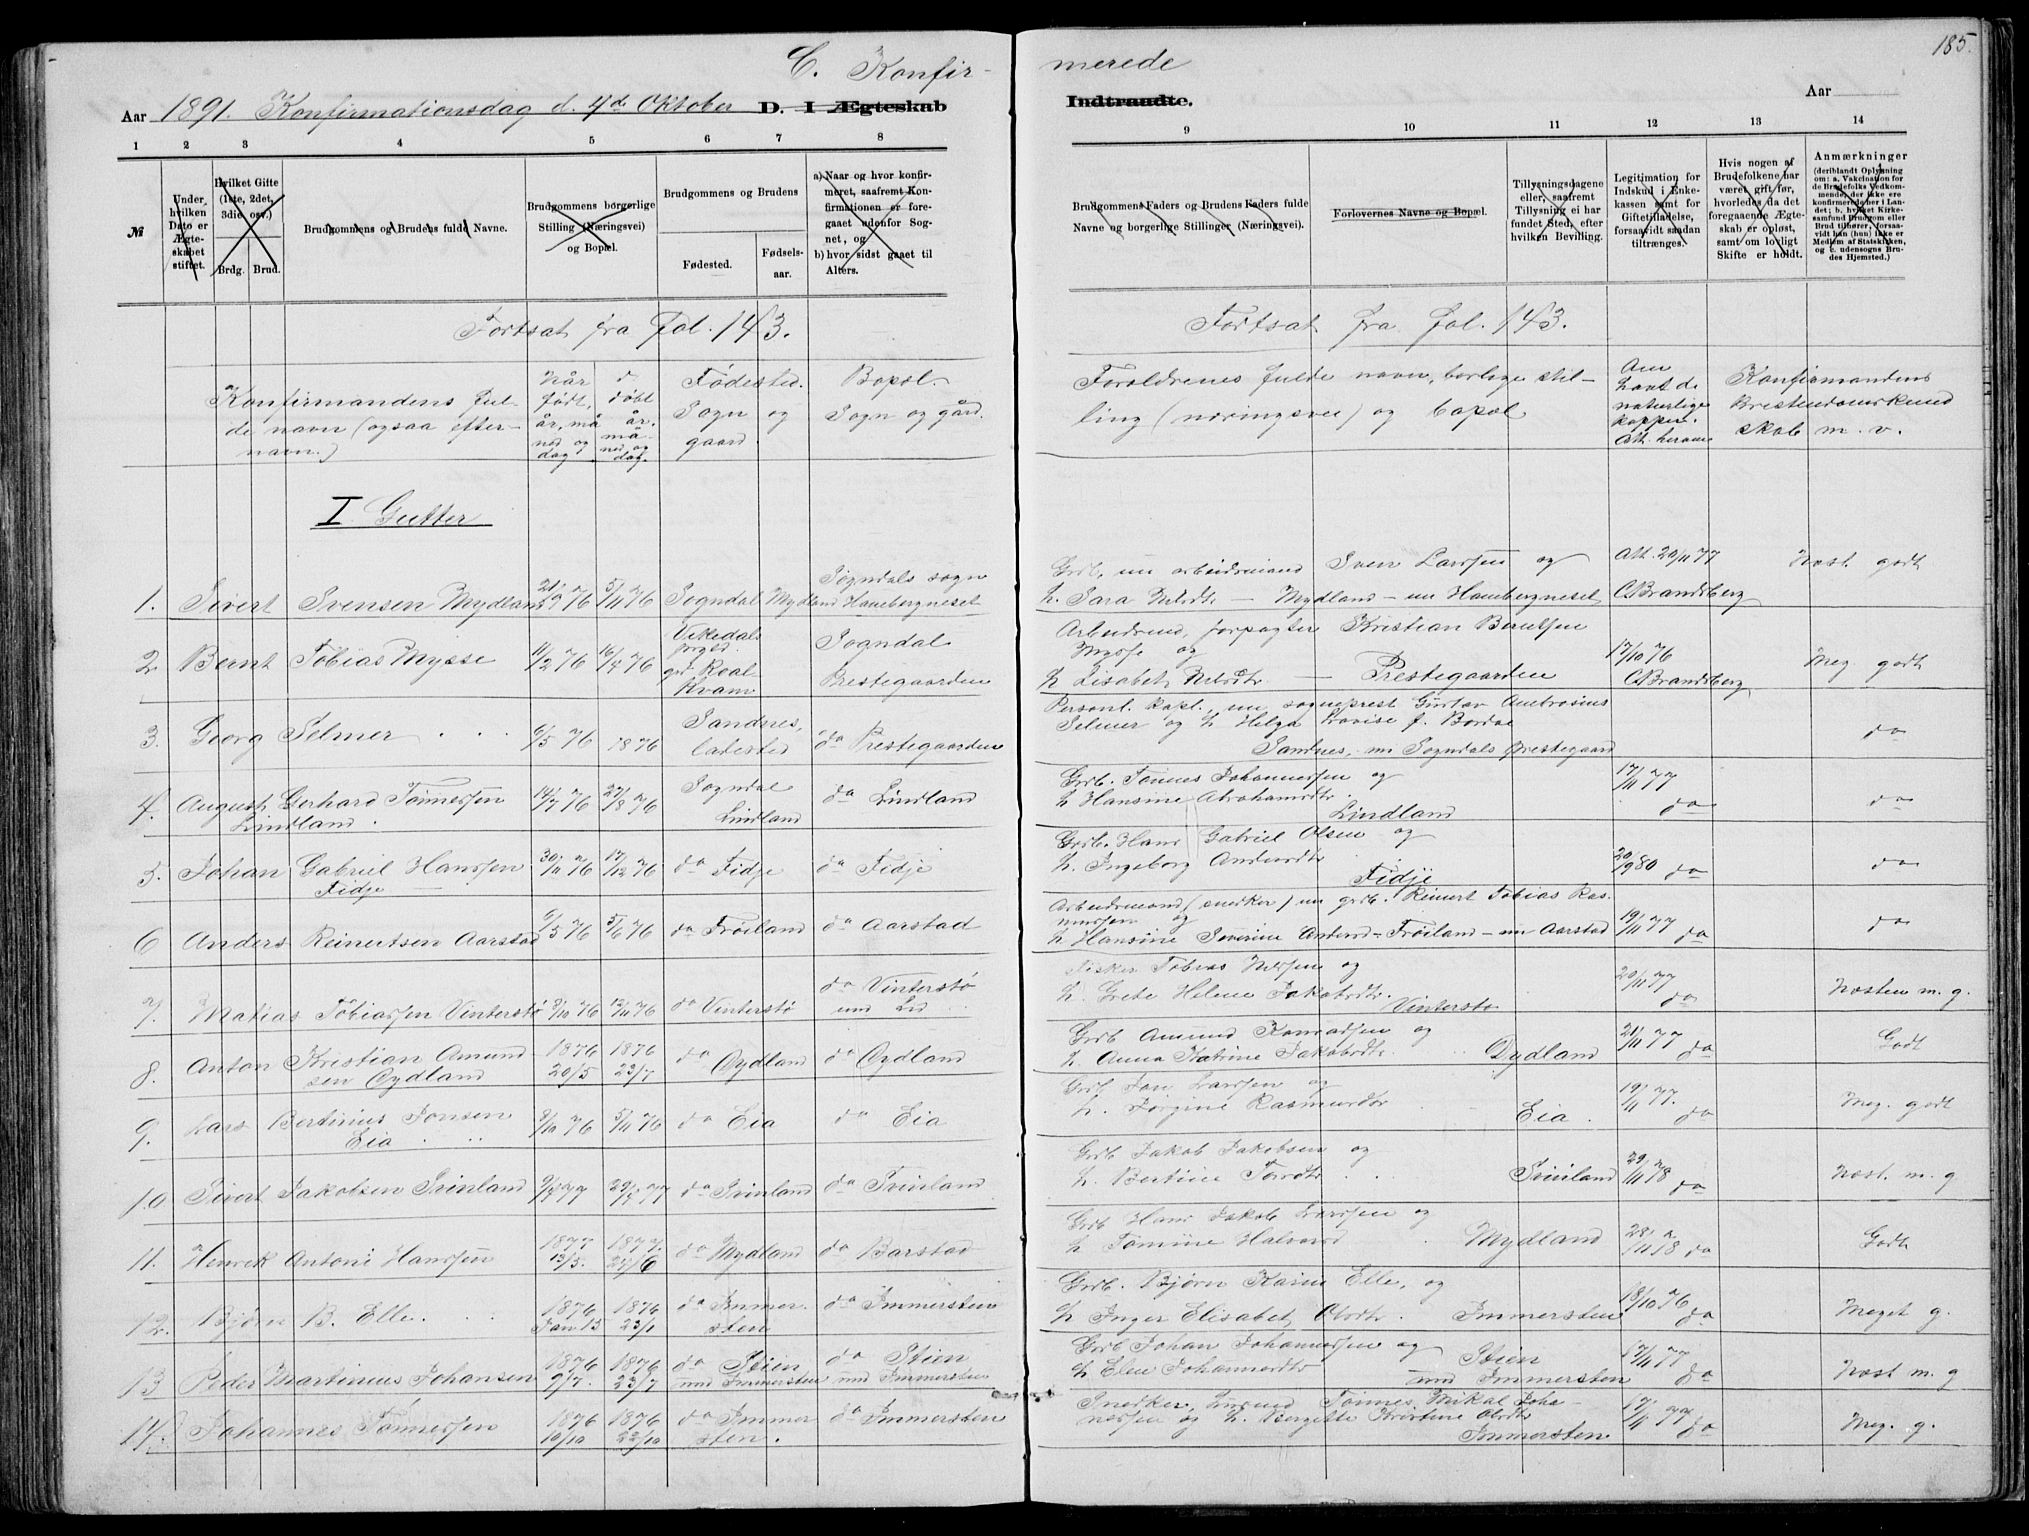 185.
C. Konfir-
merede
Aar 1891. Konfirmationsdag d. 4de Oktober D. I Ægteskab
Indtraadte.
Aar
1 2 3 4 5 6 7 8
9 10 11 12 13 14
№
Under hvilken Dato er Ægteskabet stiftet.
Hvilket Gifte (1ste, 2det, 3die osv.)
Brdg. Brud.
Brudgommens og Brudens fulde Navne.
Brudgommens borgerlige Stilling (Næringsvei) og Bopæl.
Brudgommens og Brudens
Fødested. Fødselsaar.
a) Naar og hvor konfirmeret, saafremt Konfirmationen er foregaaet udenfor Sognet, og
b) hvor sidst gaaet til Alters.
Brudgommens Faders og Brudens Faders fulde Navne og borgerlige Stillinger (Næringsvei).
Forlovernes Navne og Bopæl.
Tillysningsdagene eller, saafremt Tillysning ei har fundet Sted, efter hvilken Bevilling.
Legitimation for Indskud i Enkekassen samt for Giftetilladelse, forsaavidt saadan tiltrænges.
Hvis nogen af Brudefolkene har været gift før, hvorledes da det foregaaende Ægteskab er opløst, samt om lovligt Skifte er holdt.
Anmærkninger
(deriblandt Oplysning om: a. Vakcination for de Brudefolks Vedkommende, der ikke ere konfirmerede her i Landet; b. hvilket Kirkesamfund Brudgom eller Brud tilhører, forsaavidt han (hun) ikke er Medlem af Statskirken, og c. udensogns Brudes Hjemsted.)
Fortsat fra fol. 143.
Fortsat fra fol. 143.
Konfirmandens fulde navn (ogsaa efternavn.)
Når født, år, måned og dag
d. døbt år. måned og dag.
Fødested. Sogn og gaard.
Bopæl. Sogn og gård.
Forældrenes fulde navn, borlige stilling (næringsvei) og bopæl
Konfirmandens kristendomskundskab m. v.
I Gutter
1. Sivert Svensen Mydland 76 5/11 76 Sogndal Mydland Sogndals sogn
Sven Larssen og
h. Sara Nilsdtr. - Mydland
Att. 20/11 77 C. Brandsberg Næst godt
2 Bernt Tobias Mysse 11/2 76 16/4 76 Vikedals
Sogndal Prestegaarden
Arbeidsmd, forpagter Kristian Berntsen Mysse og
h. Lisabet Nilsdtr. - Prestegaarden
17/10 76 C. Brandsberg Meg godt
3. Georg Selmer 6/5 76 1876 Sandnes, ladested do Prestegaarden
Personl. kapl., nu sogneprest Gustav Ambrosius
Selmer og h. Helga Lovise f.
Sandnes, nu Sogndals prestegaard do
4. August Gerhard Tønnessen Lindland. 14/7 76 27/8 76 Sogndal Lindland do Lindland
Grdb. Tønnes Johannessen og
h. Hansine Abrahamsdtr. Lindland 17/11 77 do do
5. Johan Gabriel Hanssen Fidje 30/11 76 17/12 76 do Fidje do Fidje
Grdb. Hans Gabriel Olsen og
h. Ingeborg Andersdtr. Fidje 20/9 80 do do
6 Anders Reinertsen Aarstad 6/5 76 5/6 76 do Frøiland do Aarstad
Arbeidsmand (snedker) nu grdb. Reinert Tobias Rasmussen og
h. Hansine Severine Andersd - Frøiland - nu Aarstad 19/11 77 do do
7. Matias Tobiassen Vinterstø 8/10 76 12/11 76 do Vinterstø do Vinterstø
Fisker Tobias Nilssen og
h. Grete Helene Jakobsdtr. Vinterstø 20/11 77 do Næsten m. g.
8. Anton Kristian Amundsen Øydland 1876 20/5 1876 23/7 do Øydland do Øydland
Grdb Amund Konradsen og
h. Anna Katrine Jakobsdtr. Øydland 21/11 77 do Godt
9. Lars Bertinius Jonsen Eia 8/10 76 5/11 76 do Eia do Eia
Grdb Jon Larssen og
h. Jørgine Rasmusdtr Eia. 19/11 77. do Meg. godt
10 Sivert Jakobsen Svinland 9/4 77 29/4 77 do Svinland do Svinland
Grdb Jakob Jakobsen og
h. Bertine Tordtr. Svinland 29/11 78 do Næst. m. g
11. Henrik Antoni Hanssen 1877 13/5. 1877. 24/6 do Mydland do Barstad
Grdb Hans Jakob Larssen og
h Tomine Halvorsd Mydland 28/11 78 do Godt
12. Bjørn B. Elle. 1876 Jan 13 1876 23/1 do Immersten do Immersten
Grdb. Bjørn Kasin Elle, og
h Inger Elisabet Olsdtr. Immersten 18/10 76 do Meget g.
13 Peder Martinius Johansen 1876 9/7. 1876 23/7 do Stien und Immersten do Stien und Immersten
Grdb Johan Johannessen og
h Elen Johannesdtr Stien und Immersten 17/11 77 do Næst m. g
14. Johannes Tønnessen 1876 10/10 1876 22/10 do Immersten. do Immersten
Snedker, Tønnes Mikal Johannessen og h. Bergitte Kristine Olsdtr
Immersten 17/11 77 do Meg. g.